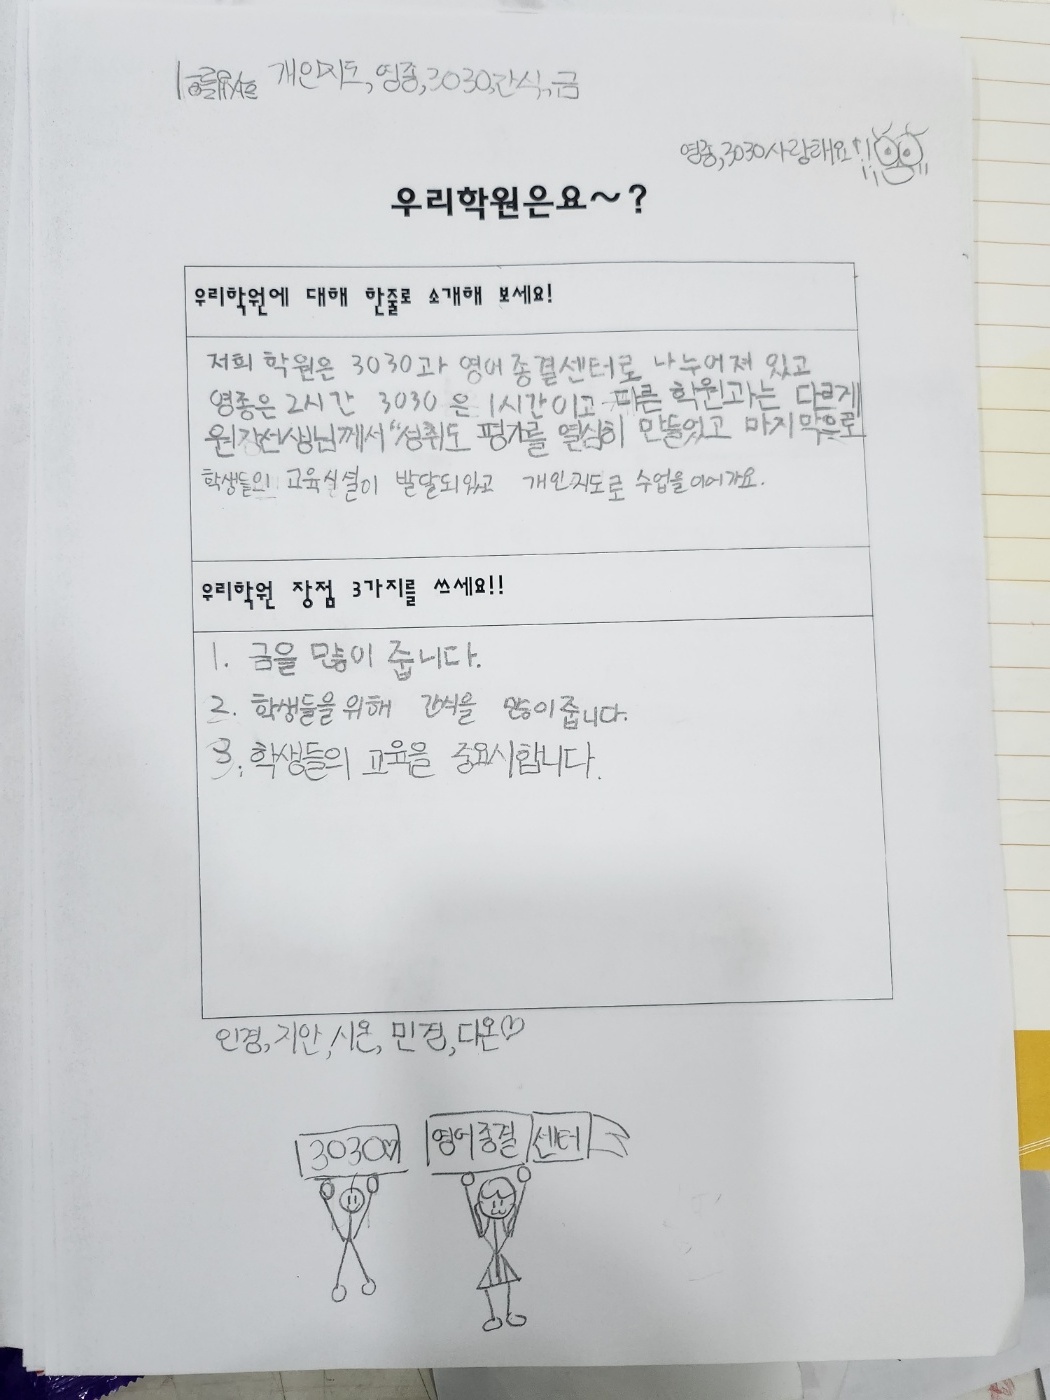 개인지도, 영종, 3030, 간식, 금
영종, 3030 사랑해요!!
우리학원은요~?
우리학원에 대해 한줄로 소개해 보세요!
저희 학원은 3030과 영어종결센터로 나누어져 있고
영종은 2시간 3030은 1시간이고 다른 학원과는 다르게
원장선생님께서 "성취도 평가를 열심히 만들었고 마지막으로
학생들의 교육실설이 발달되있고 개인지도로 수업을 이어가요.
우리학원 장점 3가지를 쓰세요!!
1. 금을 많이 줍니다.
2. 학생들을 위해 간식을 많이 줍니다.
3. 학생들의 교육을 중요시합니다.
인경, 지안, 시온, 민경, 다온♡
3030♡ 영어종결센터